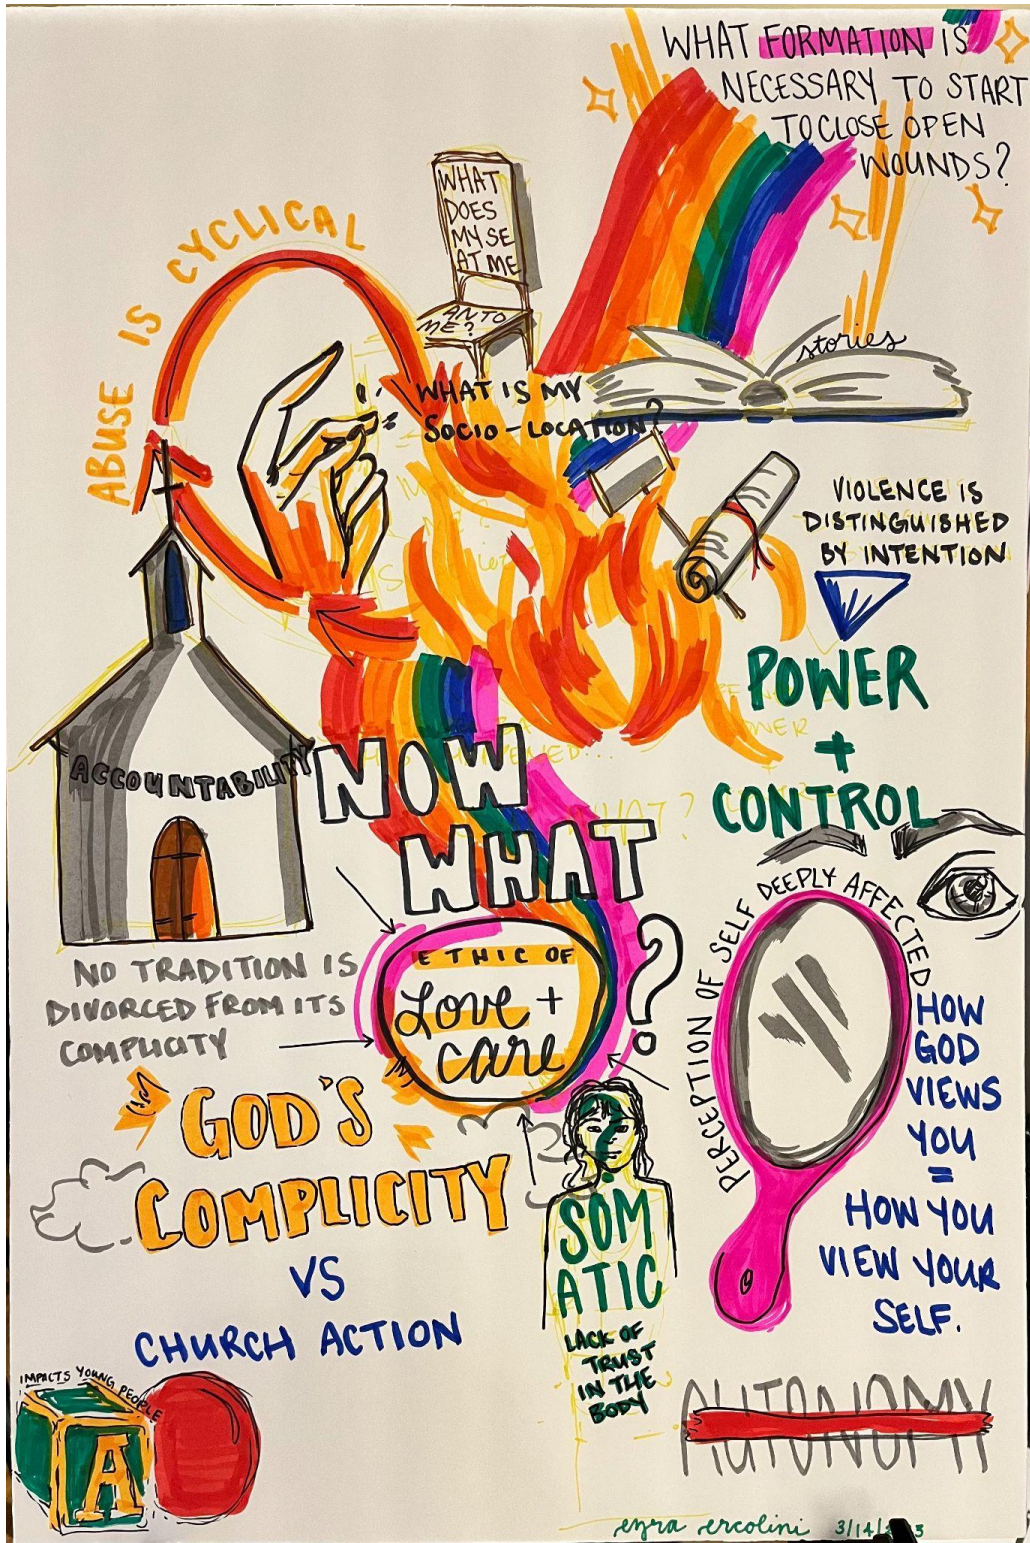 WHAT FORMATION IS
NECESSARY TO START
TO CLOSE OPEN
WOUNDS?
WHAT
DOES
MY SE
AT ME
AN TO
ME?
ABUSE IS CYCLICAL
stories
WHAT IS MY
SOCIO-LOCATION?
VIOLENCE IS
DISTINGUISHED
BY INTENTION
POWER
+
CONTROL
ACCOUNTABILITY
NOW
WHAT
?
ETHIC OF
Love +
care
NO TRADITION IS
DIVORCED FROM ITS
COMPLICITY
PERCEPTION OF SELF DEEPLY AFFECTED
HOW
GOD
VIEWS
YOU
=
HOW YOU
VIEW YOUR
SELF.
GOD'S
COMPLICITY
VS
CHURCH ACTION
SOM
ATIC
LACK OF
TRUST
IN THE
BODY
IMPACTS YOUNG PEOPLE
A
AUTONOMY
ezra ercolini